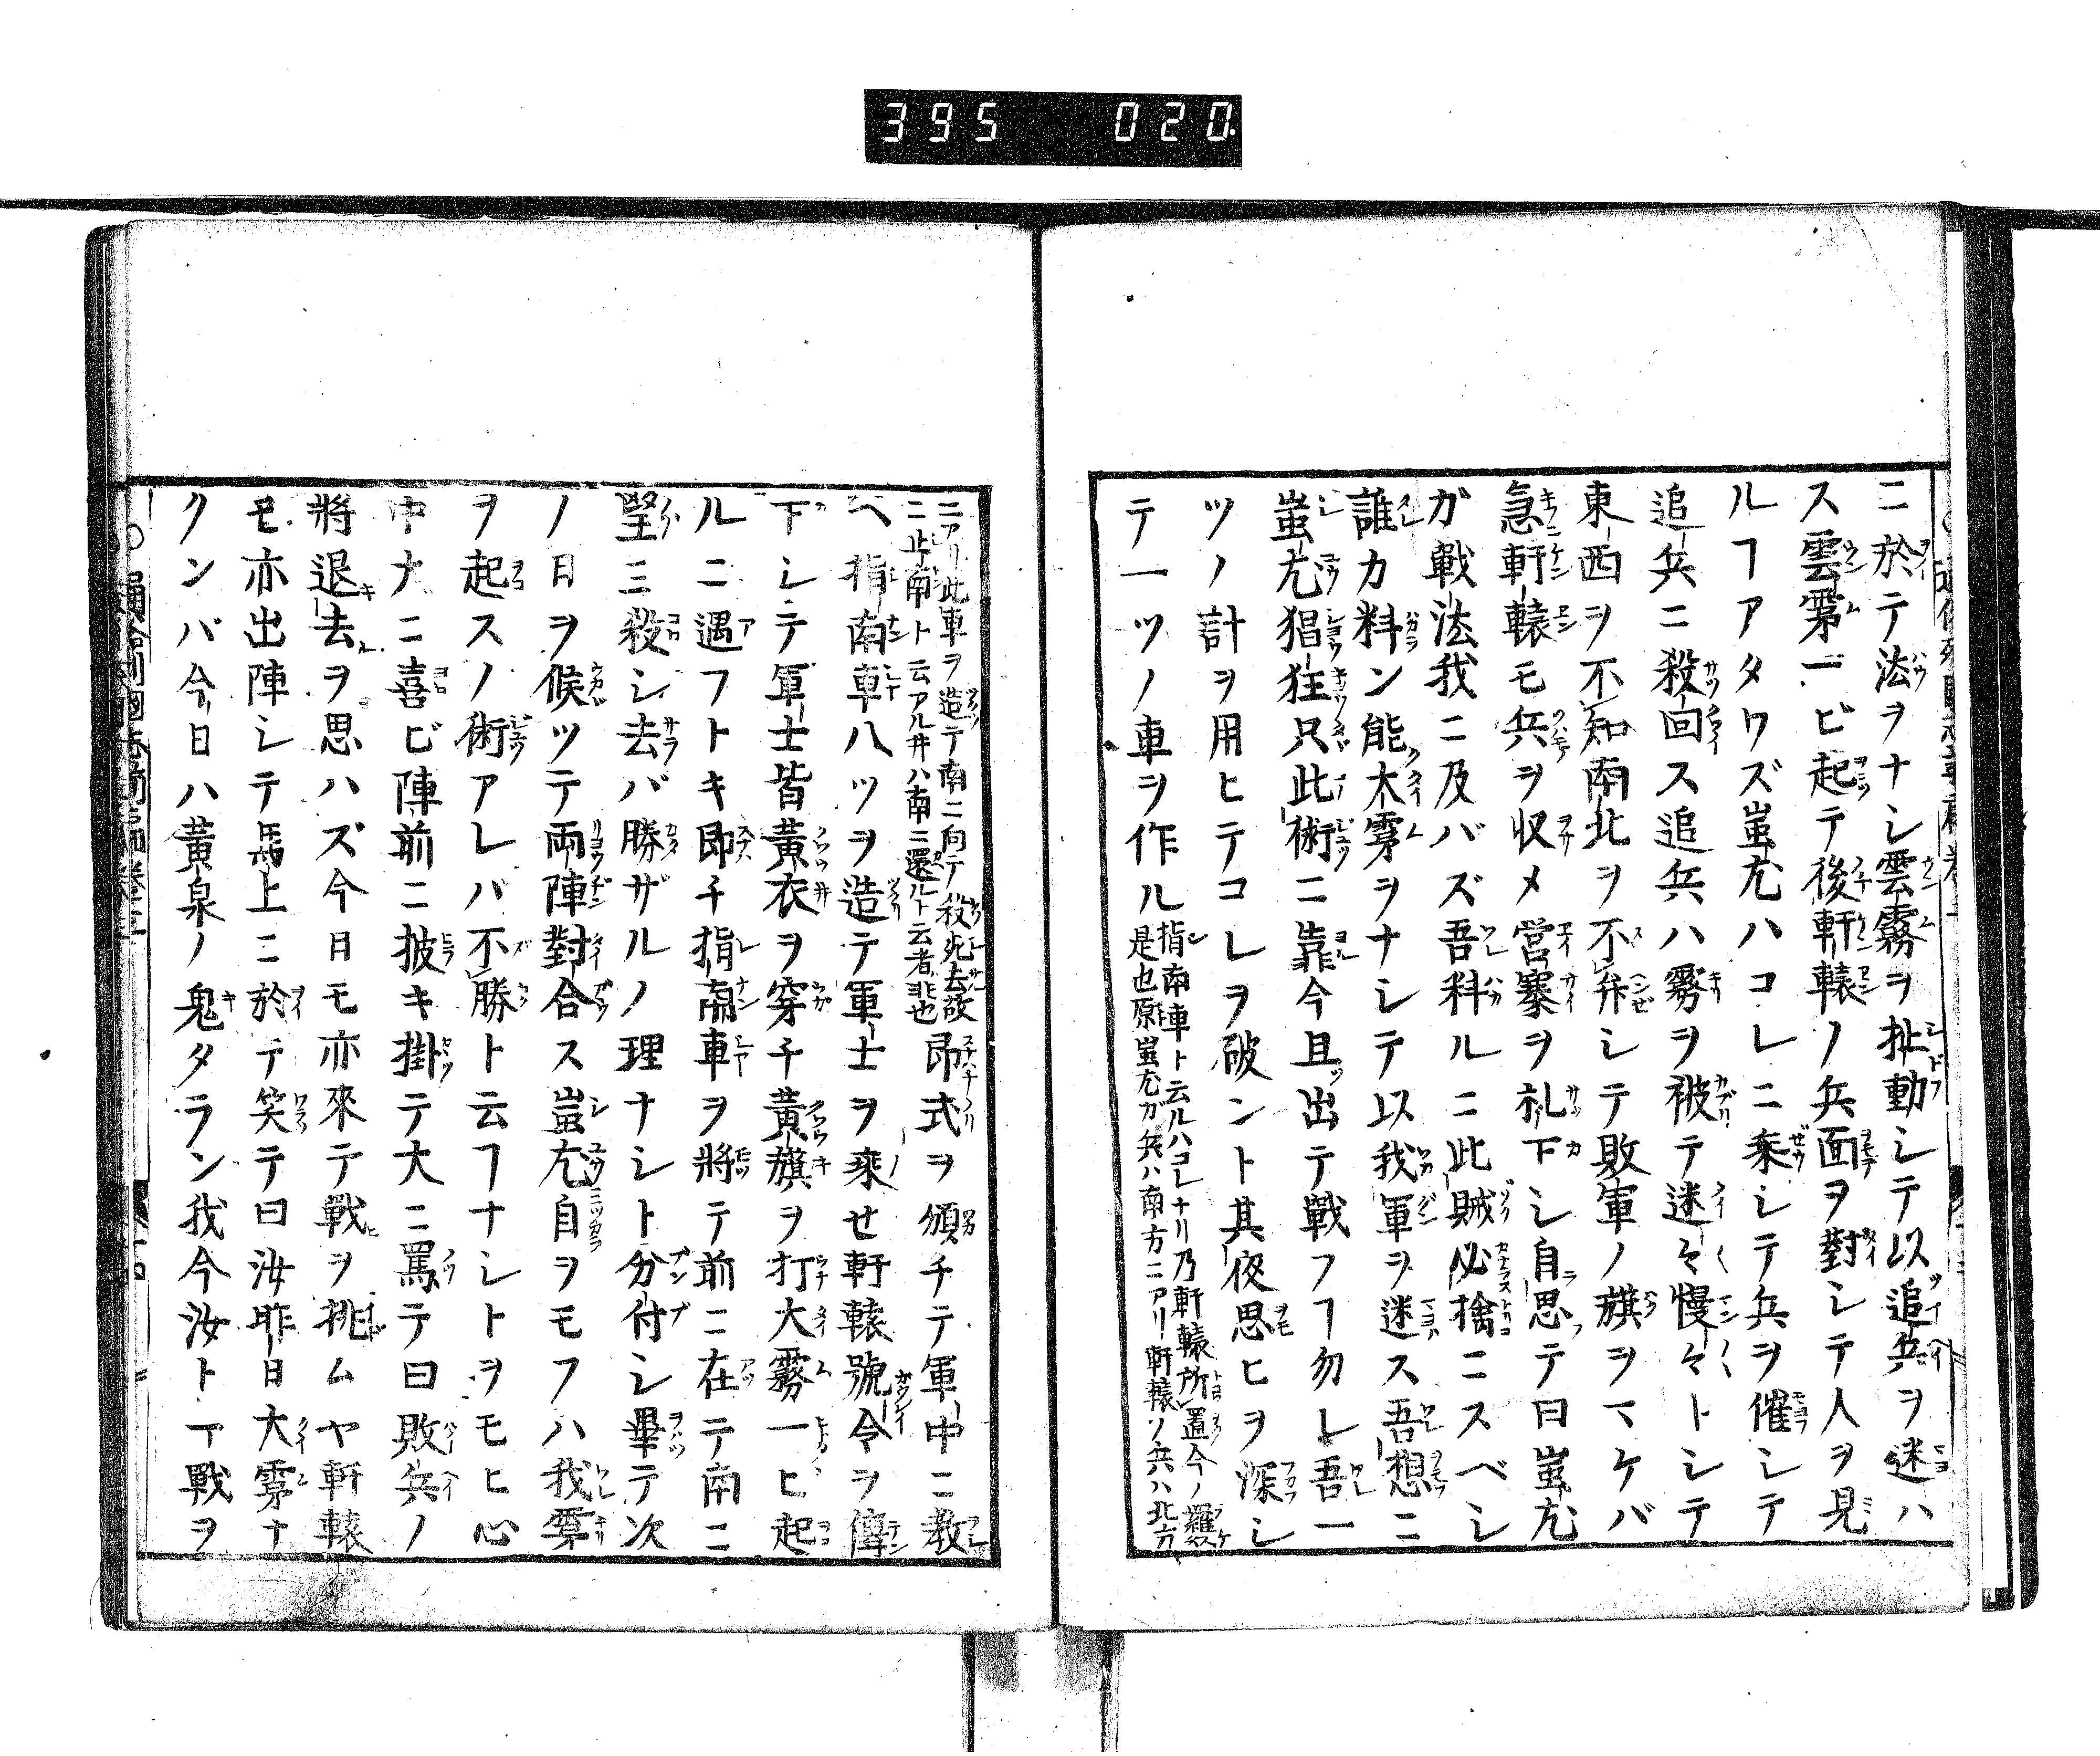 395 020
ニ於テ法ヲナシ雲霧ヲ扯動シテ以追兵ヲ迷ハ
ス雲雺一ビ起テ後軒轅ノ兵面ヲ對シテ人ヲ見
ルヿアタワズ蚩尤ハコレニ乗シテ兵ヲ催シテ
追兵ニ殺回ス追兵ハ霧ヲ被テ迷々慢々トシテ
東西ヲ不知南北ヲ不弁シテ敗軍ノ旗ヲマケバ
急軒轅モ兵ヲ収メ営寨ヲ札下シ自思テ曰蚩尤
ガ戦法我ニ及バズ吾料ルニ此賊必擒ニスベシ
誰カ料ン能大雺ヲナシテ以我軍ヲ迷ス吾想ニ
蚩尤猖狂只此術ニ靠今且出テ戦フヿ勿レ吾一
ツノ計ヲ用ヒテコレヲ破ント其夜思ヒヲ深シ
テ一ツノ車ヲ作ル
指南車ト云ルハコレナリ乃軒轅所置今ノ羅
是也原蚩尤カ兵ハ南方ニアリ軒轅ソ兵ハ北方
ニアリ此車ヲ造テ南ニ向テ殺死去故
ニ止南ト云アル井ハ南ニ還ルト云者非也
即式ヲ頒チテ軍中ニ教
ヘ指南車八ツヲ造テ軍士ヲ乗せ軒轅號令ヲ傳
下シテ軍士皆黄衣ヲ穿チ黄旗ヲ打大霧一ヒ起
ルニ遇フトキ即チ指南車ヲ將テ前ニ在テ南ニ
望ミ殺シ去バ勝ザルノ理ナシト分付シ畢テ次
ノ日ヲ候ツテ両陣對合ス蚩尤自ヲモフハ我雺
ヲ起スノ術アレバ不勝ト云フヿナシトヲモヒ心
中大ニ喜ビ陣前ニ披キ掛テ大ニ罵テ曰敗兵ノ
將退去ヲ思ハズ今日モ亦來テ戰ヲ挑ムヤ軒轅
モ亦出陣シテ馬上ニ於テ笑テ曰汝昨日大雺ナ
クンバ今日ハ黄泉ノ鬼タラン我今汝ト一戰ヲ